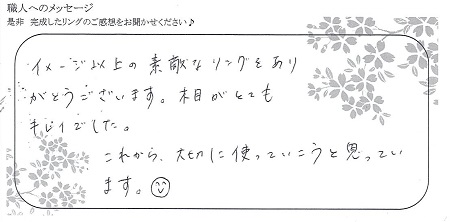 職人へのメッセージ
是非 完成したリングのご感想をお聞かせください♪
イメージ以上の素敵なリングをあり
がとうございます。木目がとても
キレイでした。
これから、大切に使っていこうと思ってい
ます。